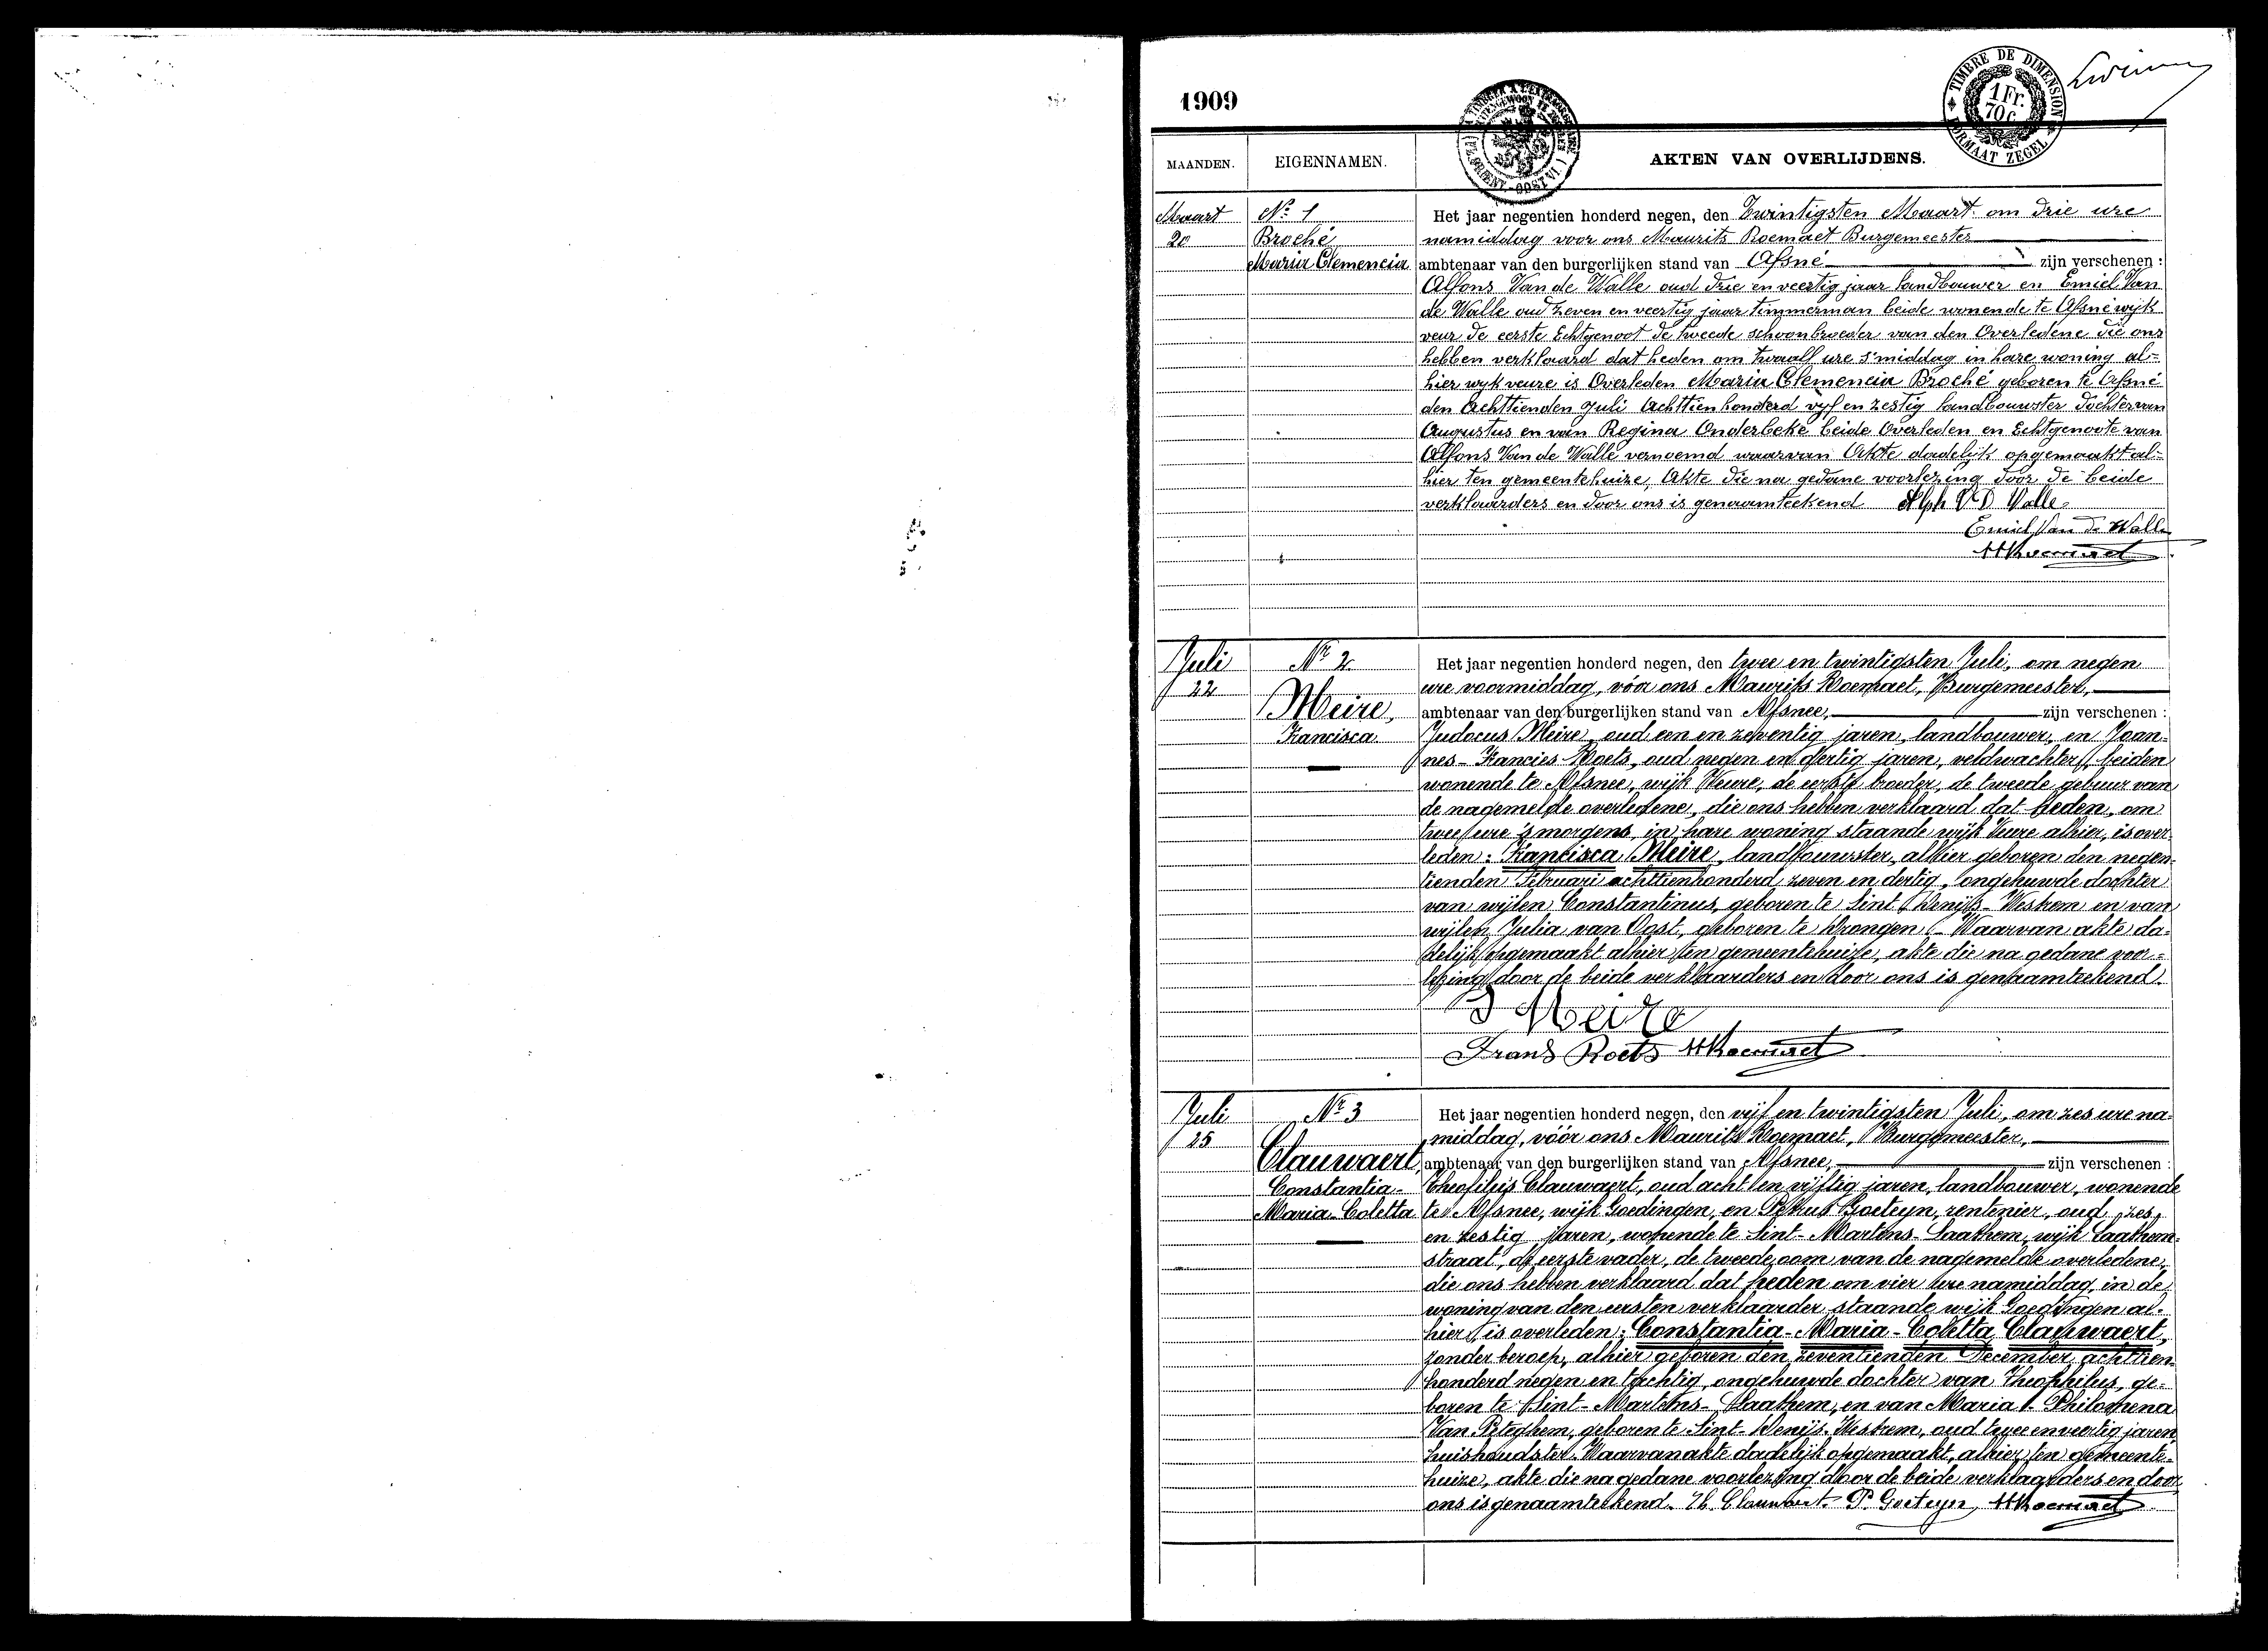 1909
TIMBRE DE DIMENSION
1 Fr. 70 c.
FORMAAT ZEGEL
MAANDEN. EIGENNAMEN. AKTEN VAN OVERLIJDENS.
Maart
20
Nº 1
Broché
Maria Clemencia
Het jaar negentien honderd negen, den Twintigsten Maart om drie ure
namiddag voor ons Maurits Roemaet Burgemeester
ambtenaar van den burgerlijken stand van Afsné zijn verschenen :
Alfons Van de Walle oud drie en veertig jaar landbouwer en Emiel Van
de Walle oud zeven en veertig jaar timmerman beide wonende te Afsné wijk
veur de eerste Echtgenoot de tweede schoonbroeder van den Overledene die ons
hebben verklaard dat heden om twaalf ure s'middag in hare woning al-
hier wyk veure is Overleden Maria Clemencia Broché geboren te Afsné
den Achttienden Juli Achttien honderd vyf en zestig landbouwster dochter van
Augustus en van Regina Onderbeke beide Overleden en Echtgenoote van
Alfons Van de Walle vernoemd waarvan Akte dadelyk opgemaakt al-
hier ten gemeentehuize, Akte die na gedane voorlezing door de beide
verklaarders en door ons is genaamteekend Alph V D Walle
Emiel Van De Walle
MRoemaet
Juli
22
Nº 2
Meire,
Francisca
Het jaar negentien honderd negen, den twee en twintigsten Juli, om negen
ure voormiddag, vóor ons Maurits Roemaet, Burgemeester,
ambtenaar van den burgerlijken stand van Afsnee, zijn verschenen :
Judocus Meire, oud een en zeventig jaren, landbouwer, en Joan-
nes-Francies Roets, oud negen en dertig jaren, veldwachter, beiden
wonende te Afsnee, wijk Veure, de eerste broeder, de tweede gebuur van
de nagemelde overledene, die ons hebben verklaard dat heden, om
twee ure 's morgens, in hare woning staande wijk Veure alhier, is over-
leden: Francisca Meire, landbouwster, alhier geboren den negen-
tienden Februari achttienhonderd zeven en dertig, ongehuwde dochter
van wijlen Constantinus, geboren te Sint Denijs-Westrem en van
wijlen Julia van Oost, geboren te Drongen. Waarvan akte da-
delijk opgemaakt alhier ten gemeentehuize, akte die na gedane voor-
lezing door de beide verklaarders en door ons is genaamteekend.
J Meire
Frans Roets MRoemaet
Juli
25
Nº 3
Clauwaert,
Constantia-
Maria-Coletta
Het jaar negentien honderd negen, den vijf en twintigsten Juli, om zes ure na-
middag, vóór ons Maurits Roemaet, Burgemeester,
ambtenaar van den burgerlijken stand van Afsnee, zijn verschenen :
Theofilus Clauwaert, oud acht en vijftig jaren, landbouwer, wonende
te Afsnee, wijk Goedingen, en Petrus Goeteyn, rentenier, oud zes
en zestig jaren, wonende te Sint-Martens-Laathem, wijk Laathem-
straat, de eerste vader, de tweede oom van de nagemelde overledene,
die ons hebben verklaard dat heden om vier ure namiddag, in de
woning van den eersten verklaarder staande wijk Goedingen al-
hier, is overleden: Constantia-Maria-Coletta Clauwaert,
zonder beroep, alhier geboren den zeventienden December achttien-
honderd negen en tachtig, ongehuwde dochter van Theophilus, ge-
boren te Sint-Martens-Laathem, en van Maria-Philomena
Van Peteghem, geboren te Sint-Denijs-Westrem, oud twee en veertig jaren,
huishoudster. Waarvan akte dadelijk opgemaakt, alhier ten gemeente-
huize, akte die na gedane voorlezing door de beide verklaarders en door
ons is genaamteekend. Th. Clauwaert P. Goeteyn, MRoemaet